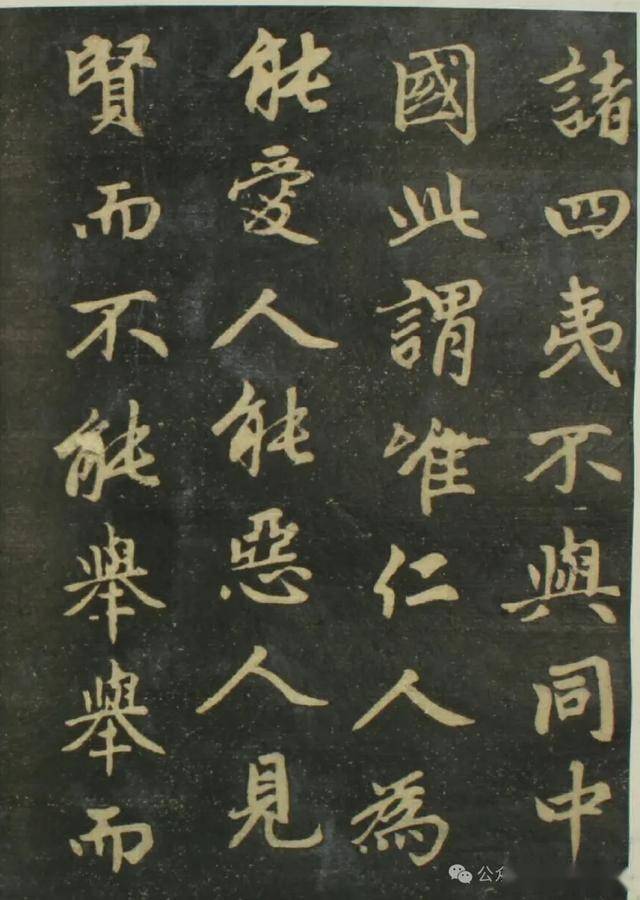 諸四夷不與同中
國此謂唯仁人為
能愛人能惡人見
賢而不能舉舉而
公众